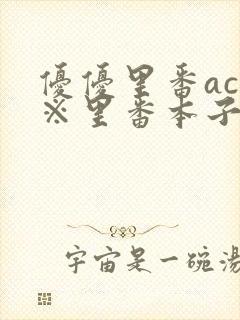 優優里番ac
※里番本子
宇宙是一碗湯